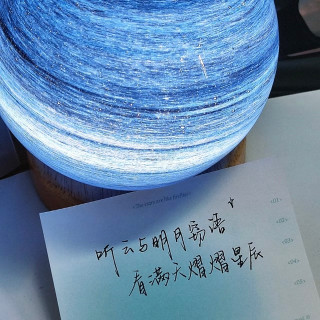 听云与明月窃语
看满天熠熠星辰